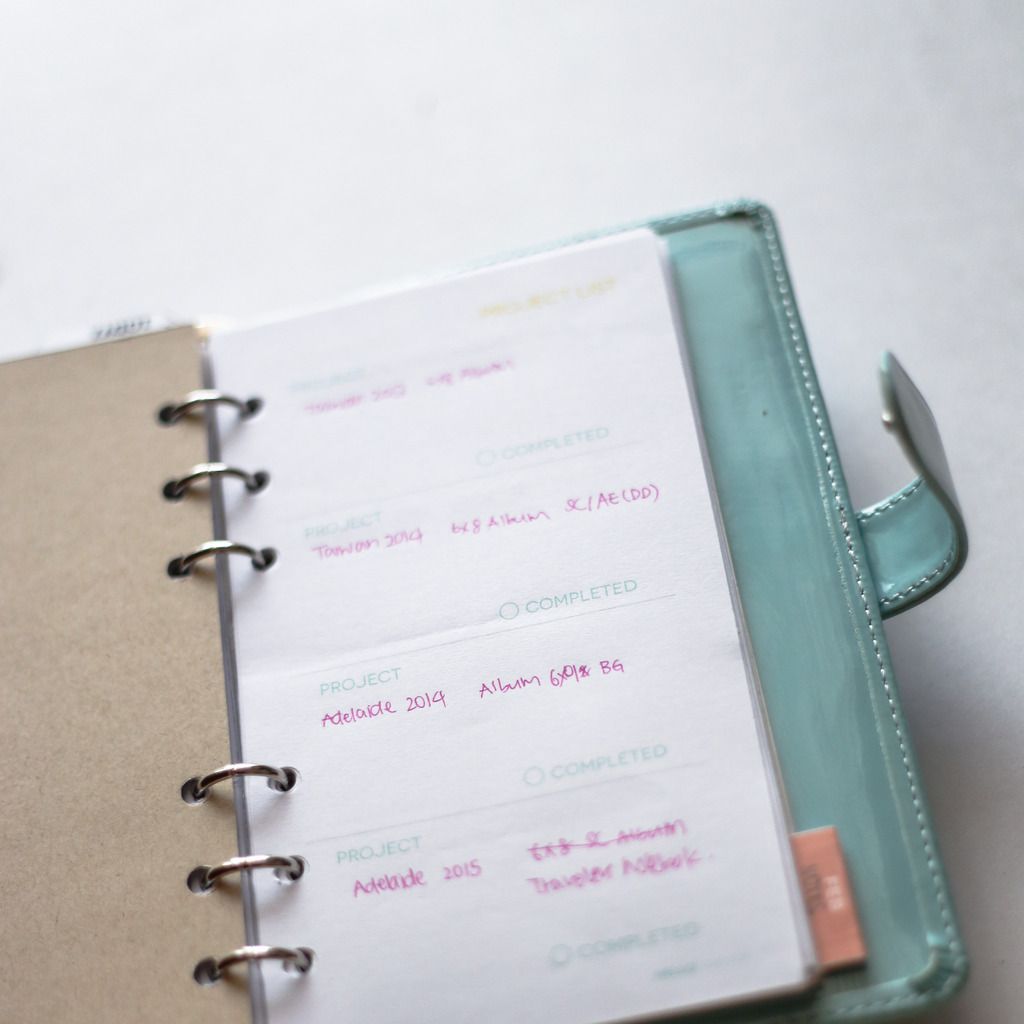 PROJECT LIST
PROJECT
Taiwan 2012 6x8 Album
COMPLETED
PROJECT
Taiwan 2014 6x8 Album SC/AE(DD)
COMPLETED
PROJECT
Adelaide 2014 Album BG
COMPLETED
PROJECT
6x8 SC Album
Adelaide 2015 Traveler Notebook.
COMPLETED
FEB